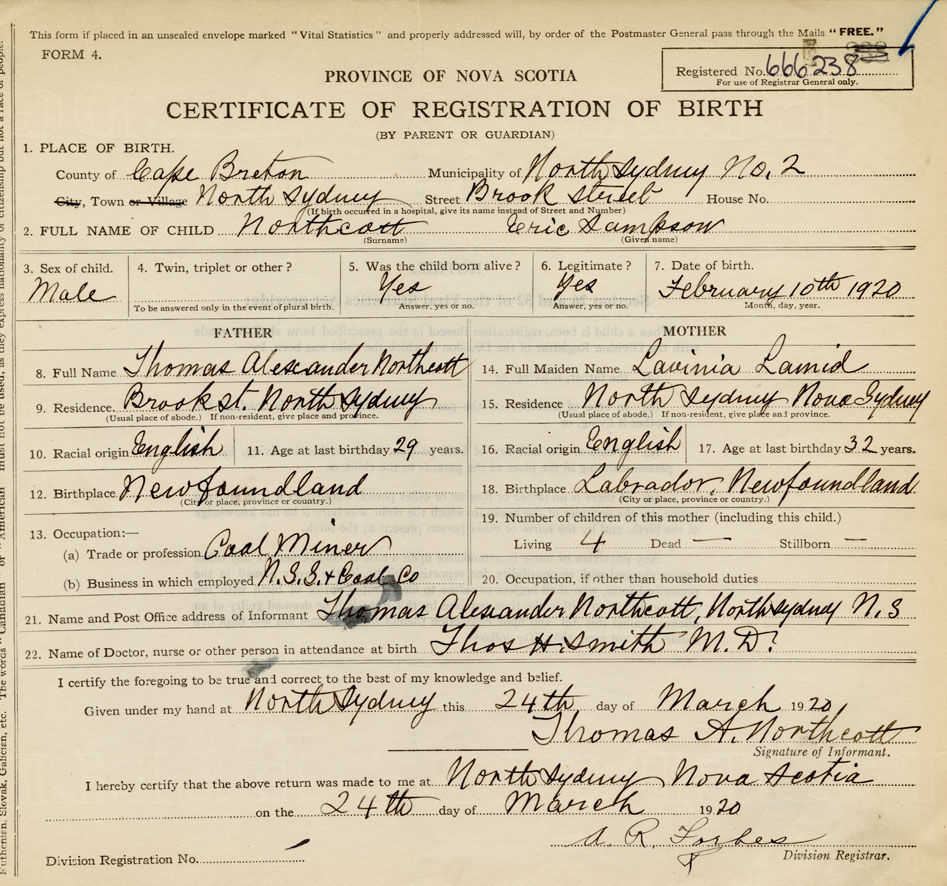 This form if placed in an unsealed envelope marked "Vital Statistics" and properly addressed will, by order of the Postmaster General pass through the Mails "FREE."
FORM 4.
Registered No. 666238
For use of Registrar General only.
PROVINCE OF NOVA SCOTIA
CERTIFICATE OF REGISTRATION OF BIRTH
(BY PARENT OR GUARDIAN)
1. PLACE OF BIRTH.
County of Cape Breton Municipality of North Sydney No. 2
City, Town or Village North Sydney Street Brook street House No.
(If birth occurred in a hospital, give its name instead of Street and Number)
2. FULL NAME OF CHILD Northcott Eric Sampson
(Surname) (Given name)
3. Sex of child. 4. Twin, triplet or other? 5. Was the child born alive? 6. Legitimate? 7. Date of birth.
Male Yes Yes February 10th 1920
To be answered only in the event of plural birth. Answer, yes or no. Answer, yes or no. Month, day, year.
FATHER MOTHER
8. Full Name Thomas Alexander Northcott 14. Full Maiden Name Lavinia
9. Residence. Brook st. North Sydney 15. Residence North Sydney Nova Sydney
(Usual place of abode.) If non-resident, give place and province. (Usual place of abode.) If non-resident, give place and province.
10. Racial origin English 11. Age at last birthday 29 years. 16. Racial origin English 17. Age at last birthday 32 years.
12. Birthplace Newfoundland 18. Birthplace Labrador, Newfoundland
(City or place, province or country.) (City or place, province or country.)
13. Occupation:— 19. Number of children of this mother (including this child.)
(a) Trade or profession Coal Miner Living 4 Dead — Stillborn —
(b) Business in which employed N.S.S. + Coal Co 20. Occupation, if other than household duties
21. Name and Post Office address of Informant Thomas Alexander Northcott, North Sydney N.S
22. Name of Doctor, nurse or other person in attendance at birth Thos H. Smith M.D.
I certify the foregoing to be true and correct to the best of my knowledge and belief.
Given under my hand at North Sydney this 24th day of March 1920,
Thomas A. Northcott
Signature of Informant.
I hereby certify that the above return was made to me at North Sydney Nova Scotia
on the 24th day of March 1920
A. R. Forbes
Division Registration No. Division Registrar.